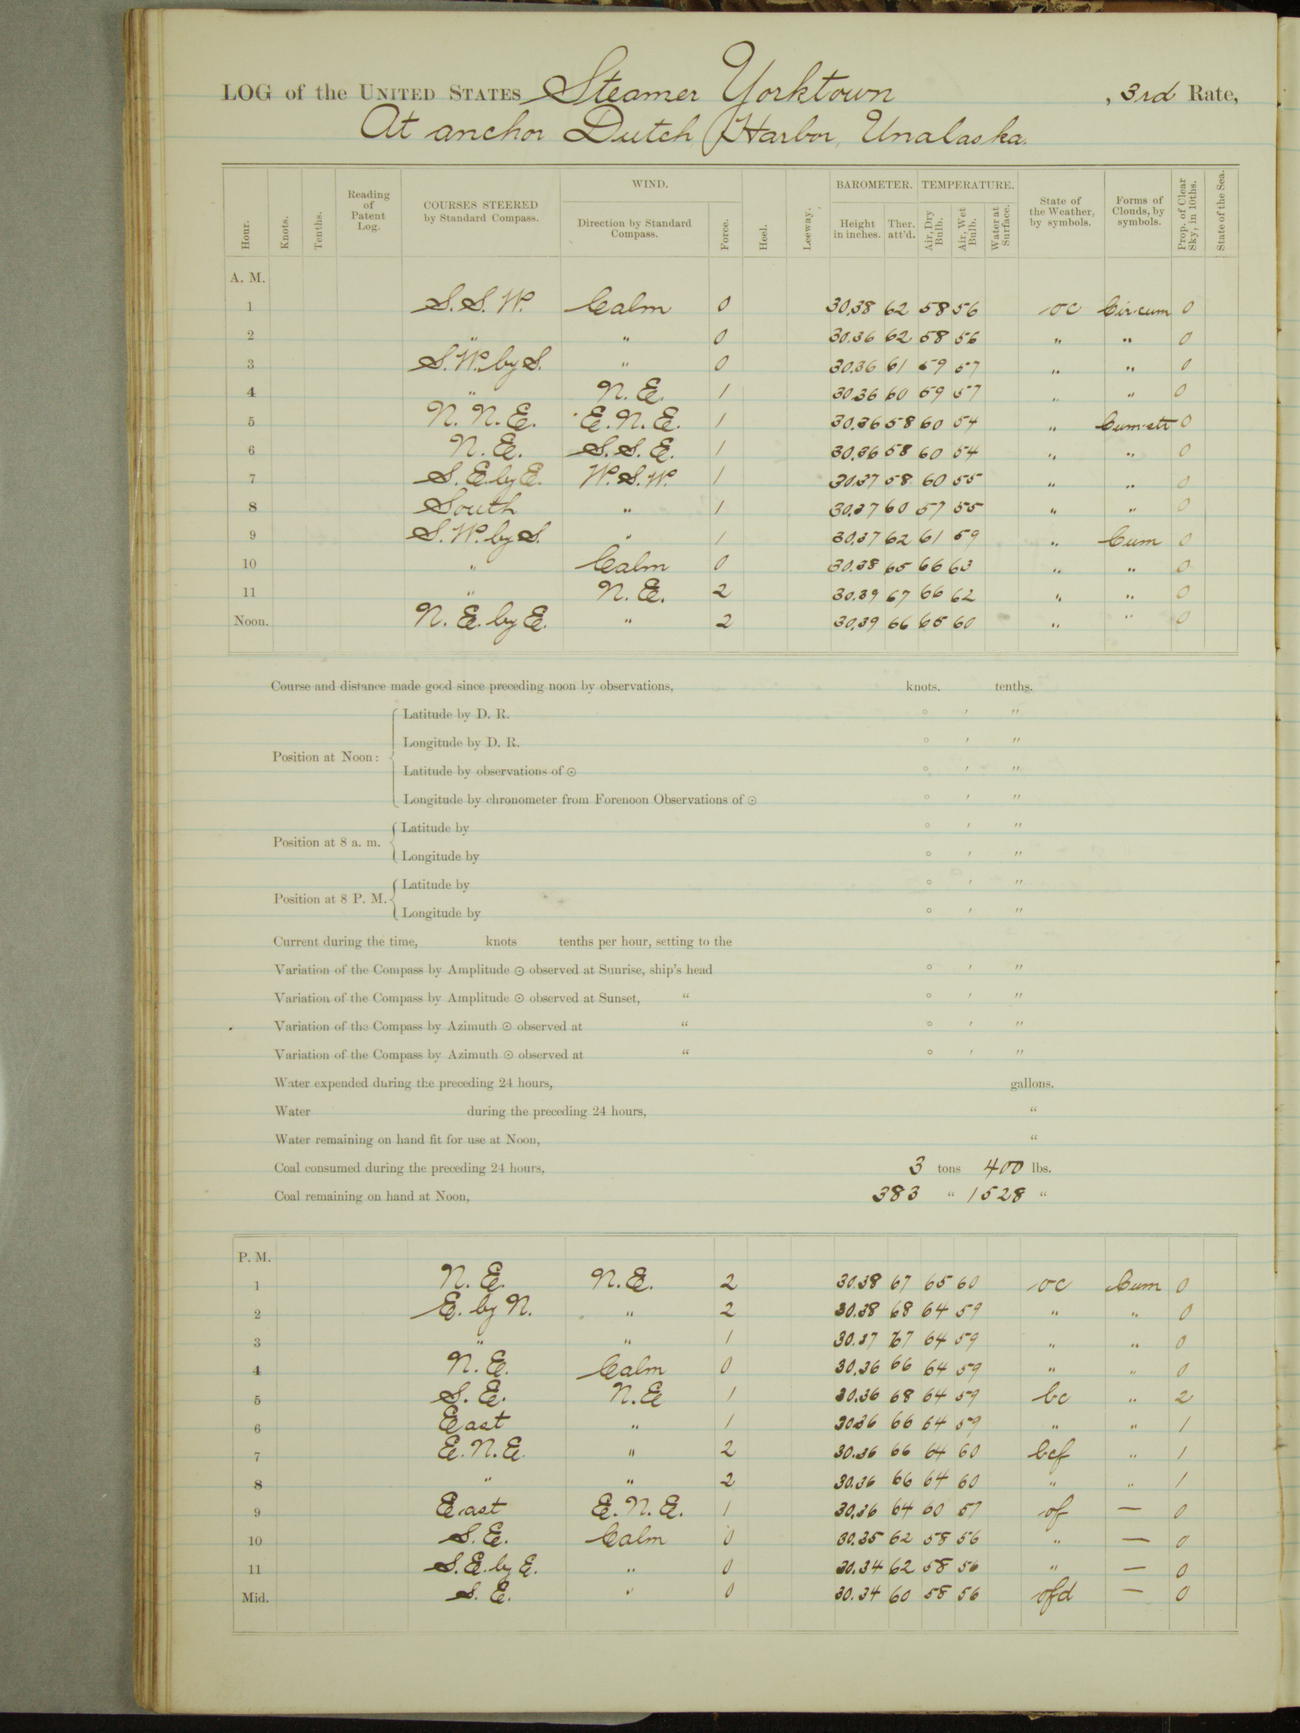 LOG of the UNITED STATES Steamer Yorktown, 3rd Rate,
At anchor Dutch Harbor, Unalaska.
Hour. Knots. Tenths. Reading of Patent Log. COURSES STEERED by Standard Compass. WIND. Direction by Standard Compass. Force. Heel. Leeway. BAROMETER. Height in inches. Ther. att'd. TEMPERATURE. Air, Dry Bulb. Air, Wet Bulb. Water at Surface. State of the Weather, by symbols. Forms of Clouds, by symbols. Prop. of Clear Sky, in 10ths. State of the Sea.
A. M.
1 S.S.W. Calm 0 30.38 62 58 56 oc Cir cum 0
2 " " 0 30.36 62 58 56 " " 0
3 S.W. by S. " 0 30.36 61 59 57 " " 0
4 " N.E. 1 30.36 60 59 57 " " 0
5 N.N.E. E.N.E. 1 30.36 58 60 54 " Cum-stt 0
6 N.E. S.S.E. 1 30.36 58 60 54 " " 0
7 S.E. by E. W.S.W. 1 30.37 58 60 55 " " 0
8 South " 1 30.37 60 57 55 " " 0
9 S.W. by S. " 1 30.37 62 61 59 " Cum 0
10 " Calm 0 30.38 65 66 63 " " 0
11 " N.E. 2 30.39 67 66 62 " " 0
Noon. N.E. by E. " 2 30.39 66 65 60 " " 0
Course and distance made good since preceding noon by observations, knots. tenths.
Latitude by D. R. ° ′ ″
Longitude by D. R. ° ′ ″
Position at Noon:
Latitude by observations of ☉ ° ′ ″
Longitude by chronometer from Forenoon Observations of ☉ ° ′ ″
Latitude by ° ′ ″
Position at 8 a. m.
Longitude by ° ′ ″
Latitude by ° ′ ″
Position at 8 P. M.
Longitude by ° ′ ″
Current during the time, knots tenths per hour, setting to the
Variation of the Compass by Amplitude ☉ observed at Sunrise, ship's head ° ′ ″
Variation of the Compass by Amplitude ☉ observed at Sunset, " ° ′ ″
Variation of the Compass by Azimuth ☉ observed at " ° ′ ″
Variation of the Compass by Azimuth ☉ observed at " ° ′ ″
Water expended during the preceding 24 hours, gallons.
Water during the preceding 24 hours, "
Water remaining on hand fit for use at Noon, "
Coal consumed during the preceding 24 hours, 3 tons 400 lbs.
Coal remaining on hand at Noon, 383 " 1528 "
P. M.
1 N.E. N.E. 2 30.38 67 65 60 oc Cum 0
2 E. by N. " 2 30.38 68 64 59 " " 0
3 " " 1 30.37 67 64 59 " " 0
4 N.E. Calm 0 30.36 66 64 59 " " 0
5 S.E. N.E 1 30.36 68 64 59 bc " 2
6 East " 1 30.36 66 64 59 " " 1
7 E.N.E. " 2 30.36 66 64 60 bcf " 1
8 " " 2 30.36 66 64 60 " " 1
9 East E.N.E. 1 30.36 64 60 57 of — 0
10 S.E. Calm 0 30.35 62 58 56 " — 0
11 S.E. by E. " 0 30.34 62 58 56 " — 0
Mid. S.E. " 0 30.34 60 58 56 ofd — 0